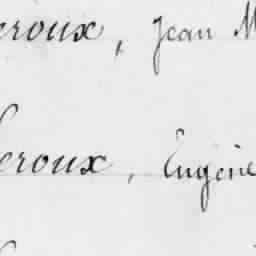 eroux, Jean M
eroux, Eugène